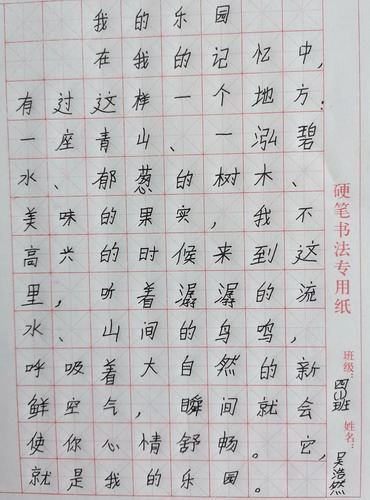 我的乐园
在我的记忆中,
有过这样一个地方:
一座青山、一泓碧
水、郁葱的树木、
美味的果实,我不
高兴的时候来到这
里,听着潺潺的流
水、山间的鸟鸣,
呼吸着大自然的新
鲜空气,瞬间就会
使你心情舒畅。它,
就是我的乐园。
硬笔书法专用纸
班级:四(1)班
姓名:吴浩然